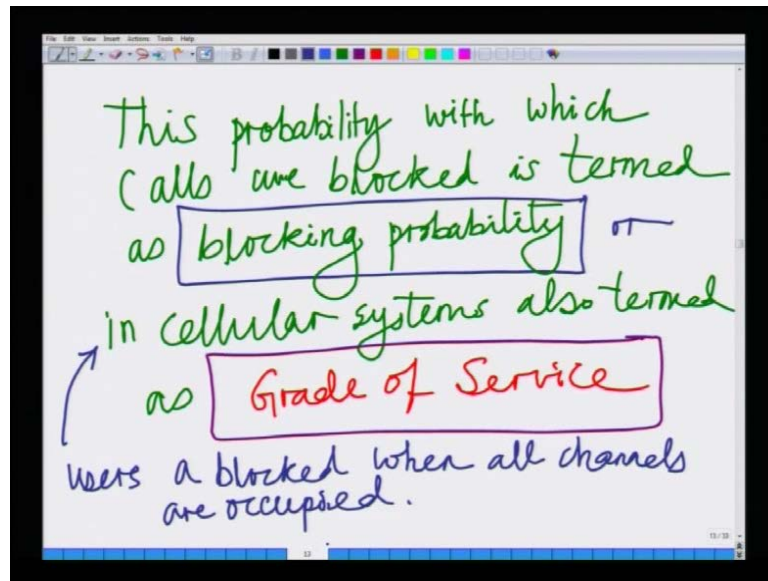 File Edit View Insert Actions Tools Help
This probability with which
Calls are blocked is termed
as blocking probability or
in cellular systems also termed
as Grade of Service
users a blocked when all channels
are occupied.
13/33
13